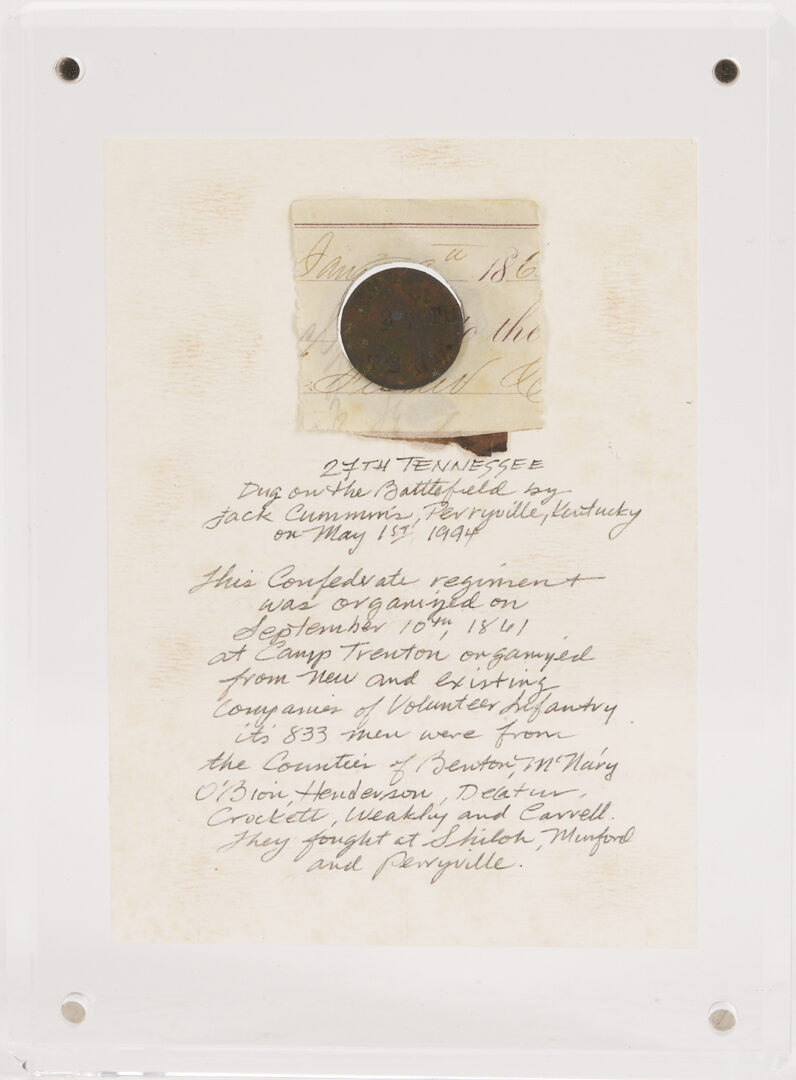 186
to the
27TH TENNESSEE
Dug on the Battlefield by
Jack Cummins, Perryville, Kentucky
on May 1ST 1994
This Confederate regiment
was organized on
September 10th, 1861
at Camp Trenton organized
from new and existing
Companies of Volunteer Infantry
it's 833 men were from
the Counties of Benton, McNary
O'Bion, Henderson, Decatur,
Crockett, Weakly and Carrell.
They fought at Shiloh, Munford
and Perryville.